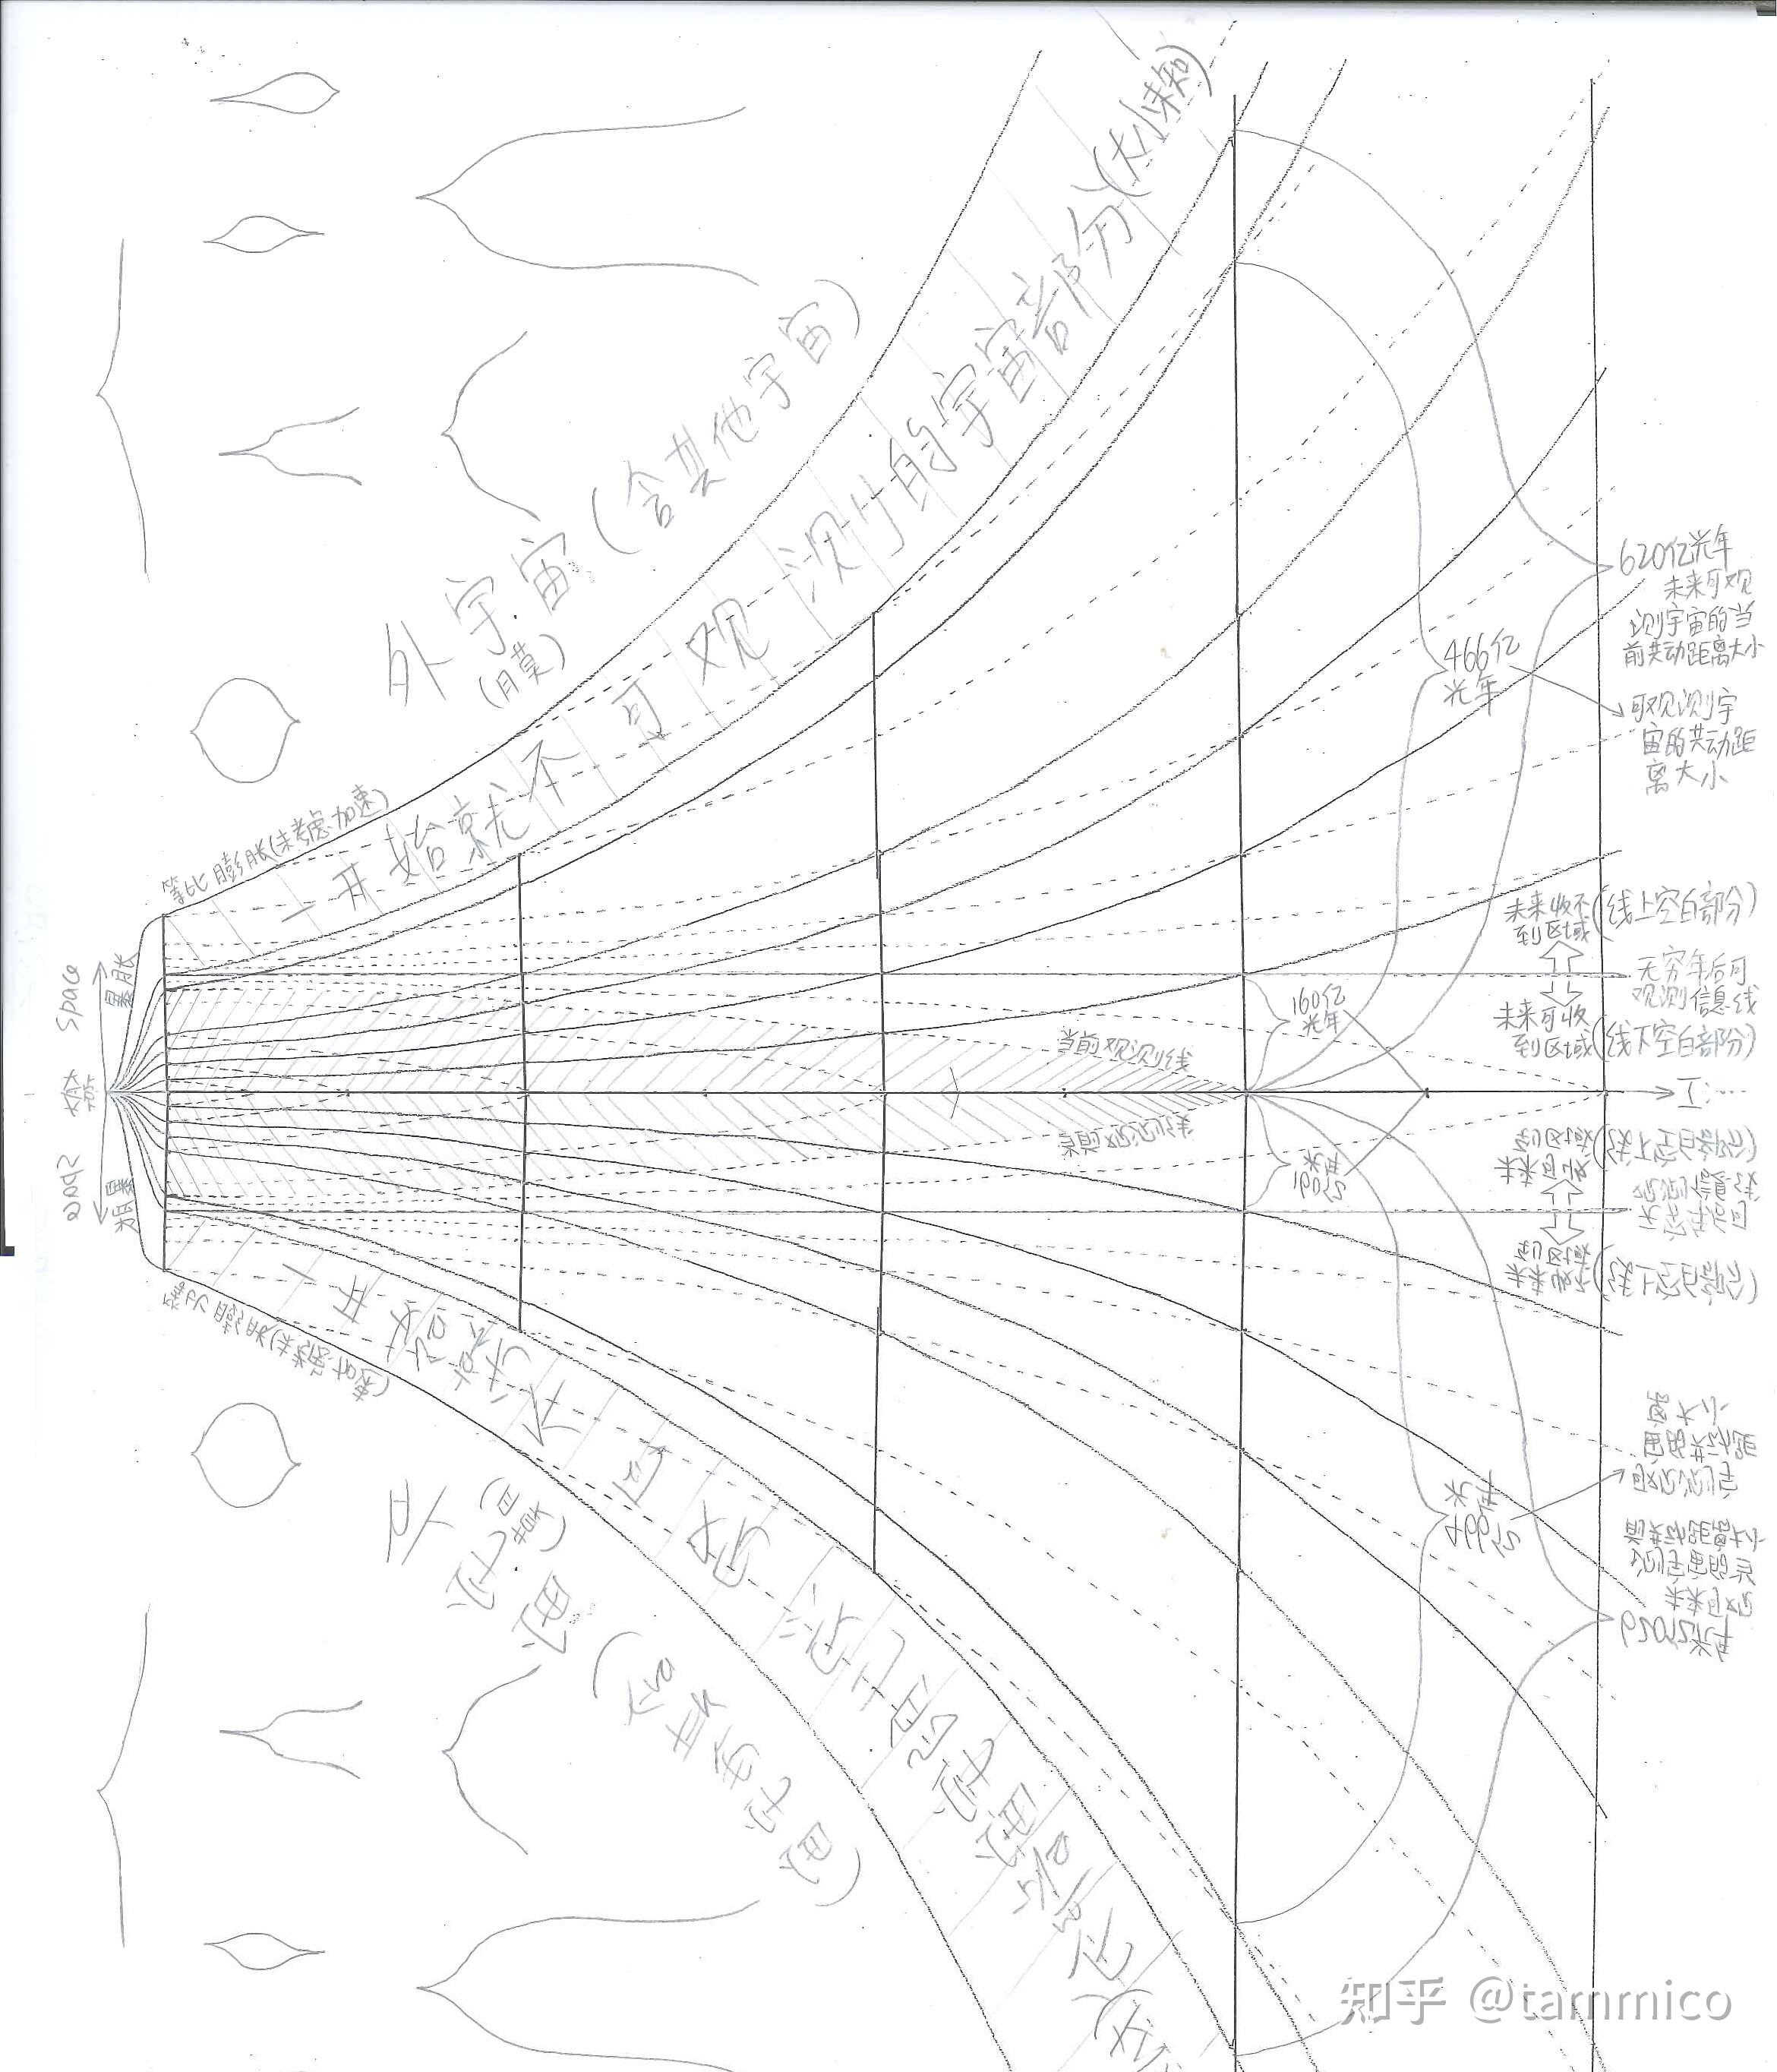 外宇宙(含其他宇宙)
(膜)
一开始就不可观测的宇宙部分(大小未知)
等比膨胀(未考虑加速)
space
暴胀
大爆炸
当前观测线
160亿
光年
466亿
光年
620亿光年
未来可观
测宇宙的当
前共动距离大小
可观测宇
宙的共动距
离大小
未来收不
到区域
(线上空白部分)
无穷年后可
观测信息线
未来可收
到区域
(线下空白部分)
知乎 @tammico